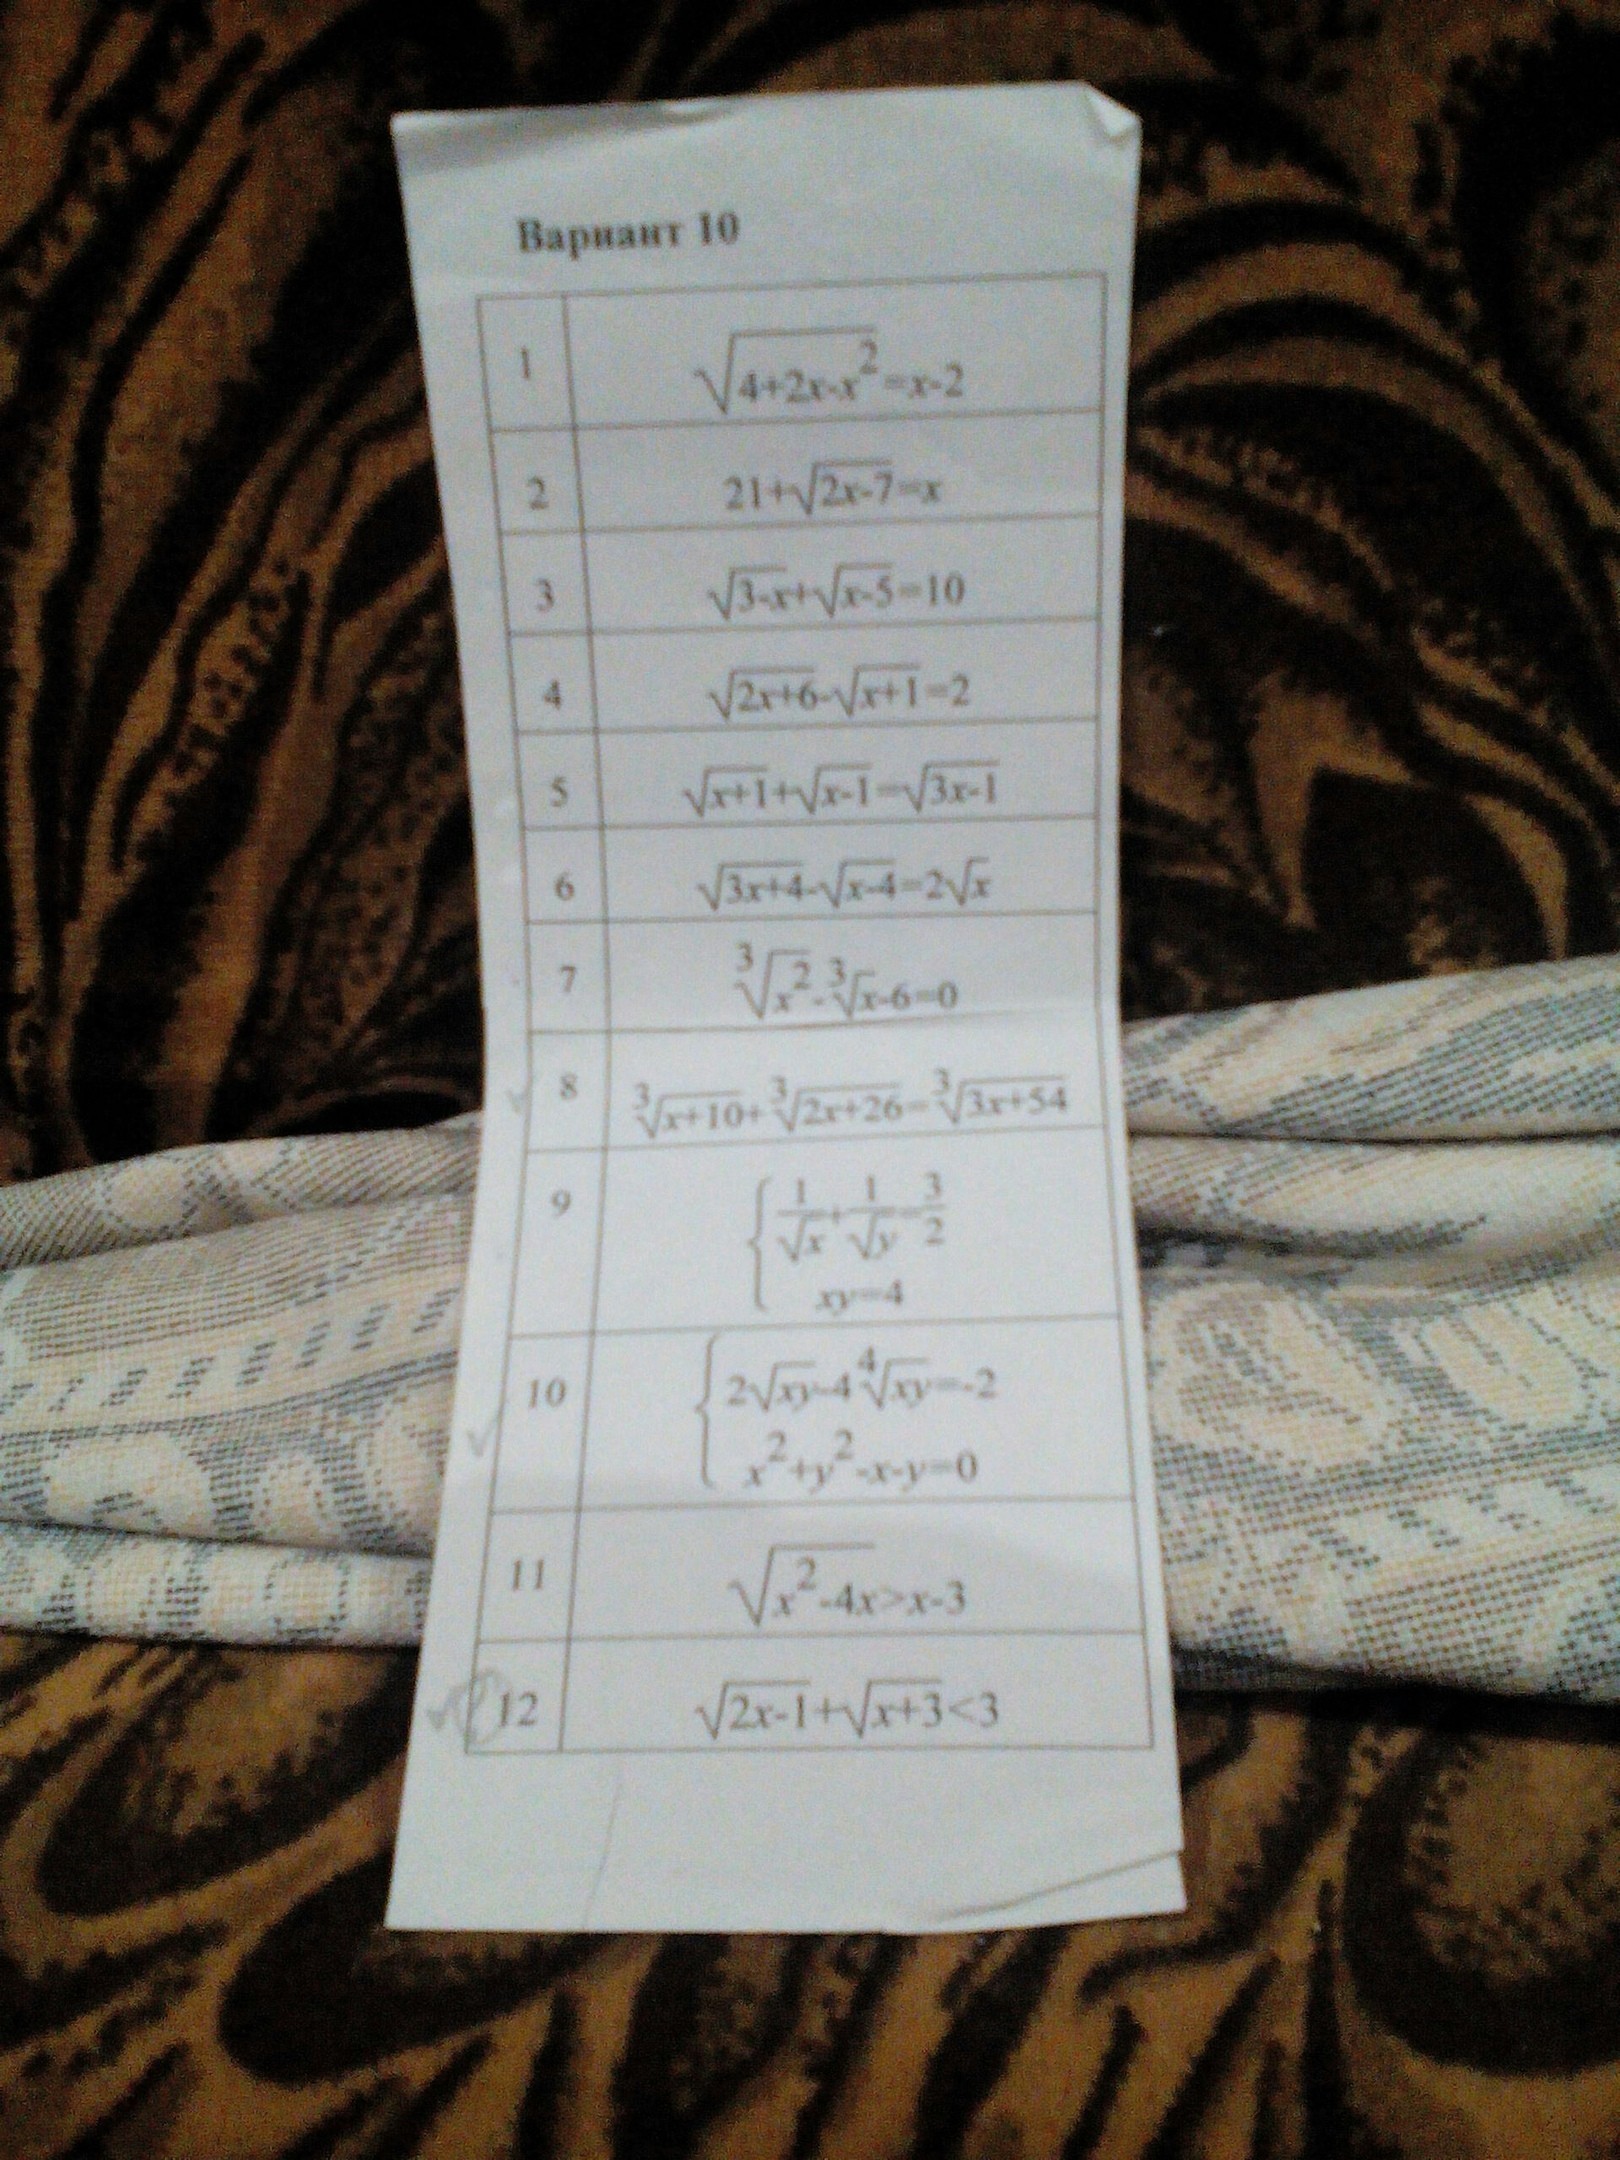 Вариант 10
1 √(4+2x-x²)=x-2
2 21+√(2x-7)=x
3 √(3-x)+√(x-5)=10
4 √(2x+6)-√(x+1)=2
5 √(x+1)+√(x-1)=√(3x-1)
6 √(3x+4)-√(x-4)=2√x
7 ∛(x²)-∛x-6=0
8 ∛(x+10)+∛(2x+26)=∛(3x+54)
9 { 1/√x+1/√y=3/2
xy=4
10 { 2√(xy)-4∜(xy)=-2
x²+y²-x-y=0
11 √(x²-4x)>x-3
12 √(2x-1)+√(x+3)<3